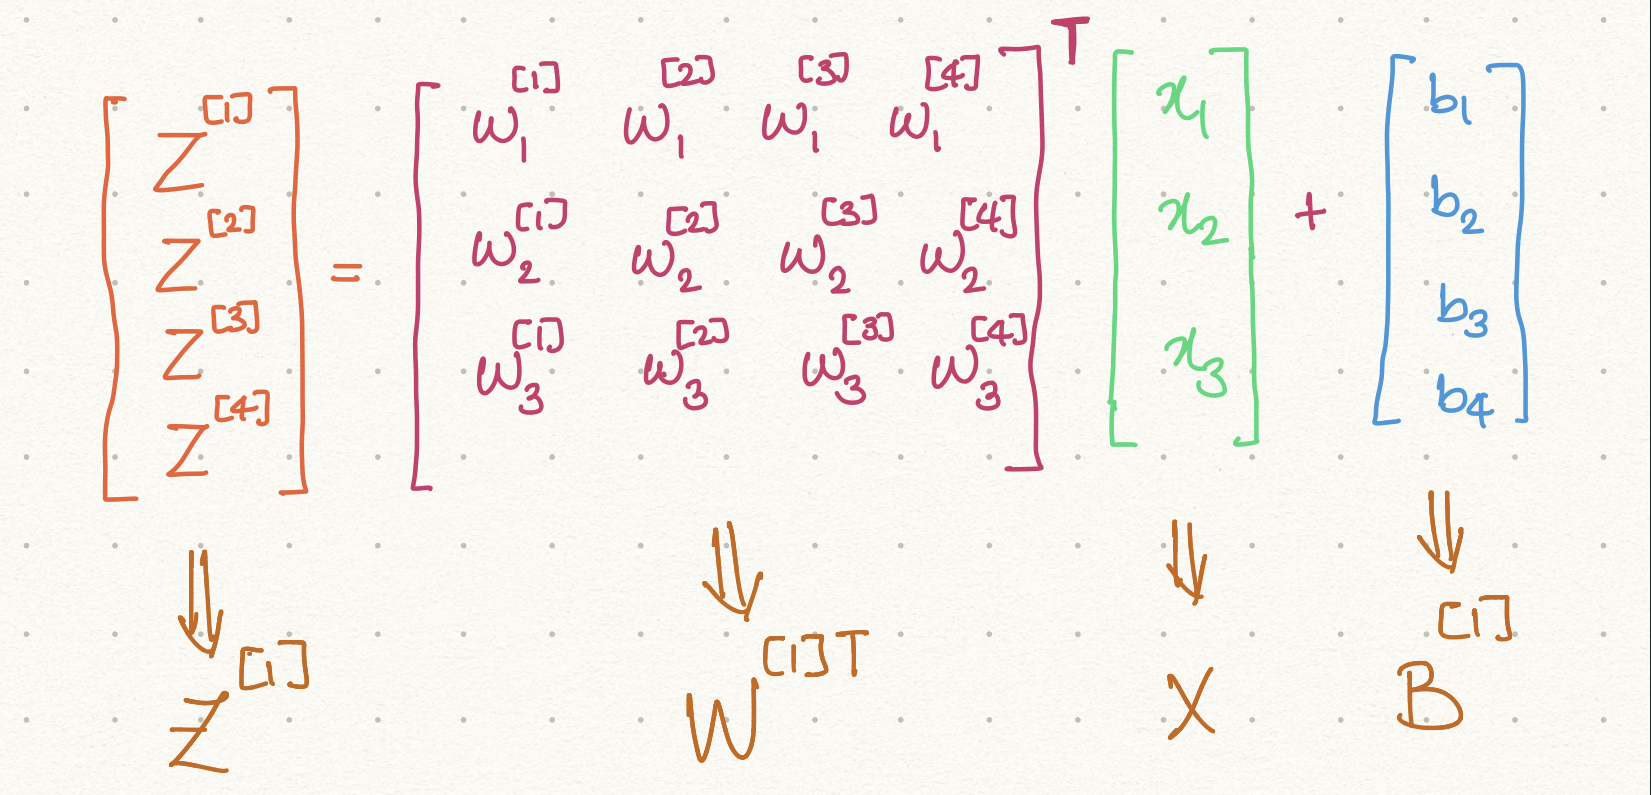 [z^[1] z^[2] z^[3] z^[4]] = [w_1^[1] w_1^[2] w_1^[3] w_1^[4]
w_2^[1] w_2^[2] w_2^[3] w_2^[4]
w_3^[1] w_3^[2] w_3^[3] w_3^[4]]^T [x_1 x_2 x_3] + [b_1 b_2 b_3 b_4]
Z^[1] W^[1]T X B^[1]